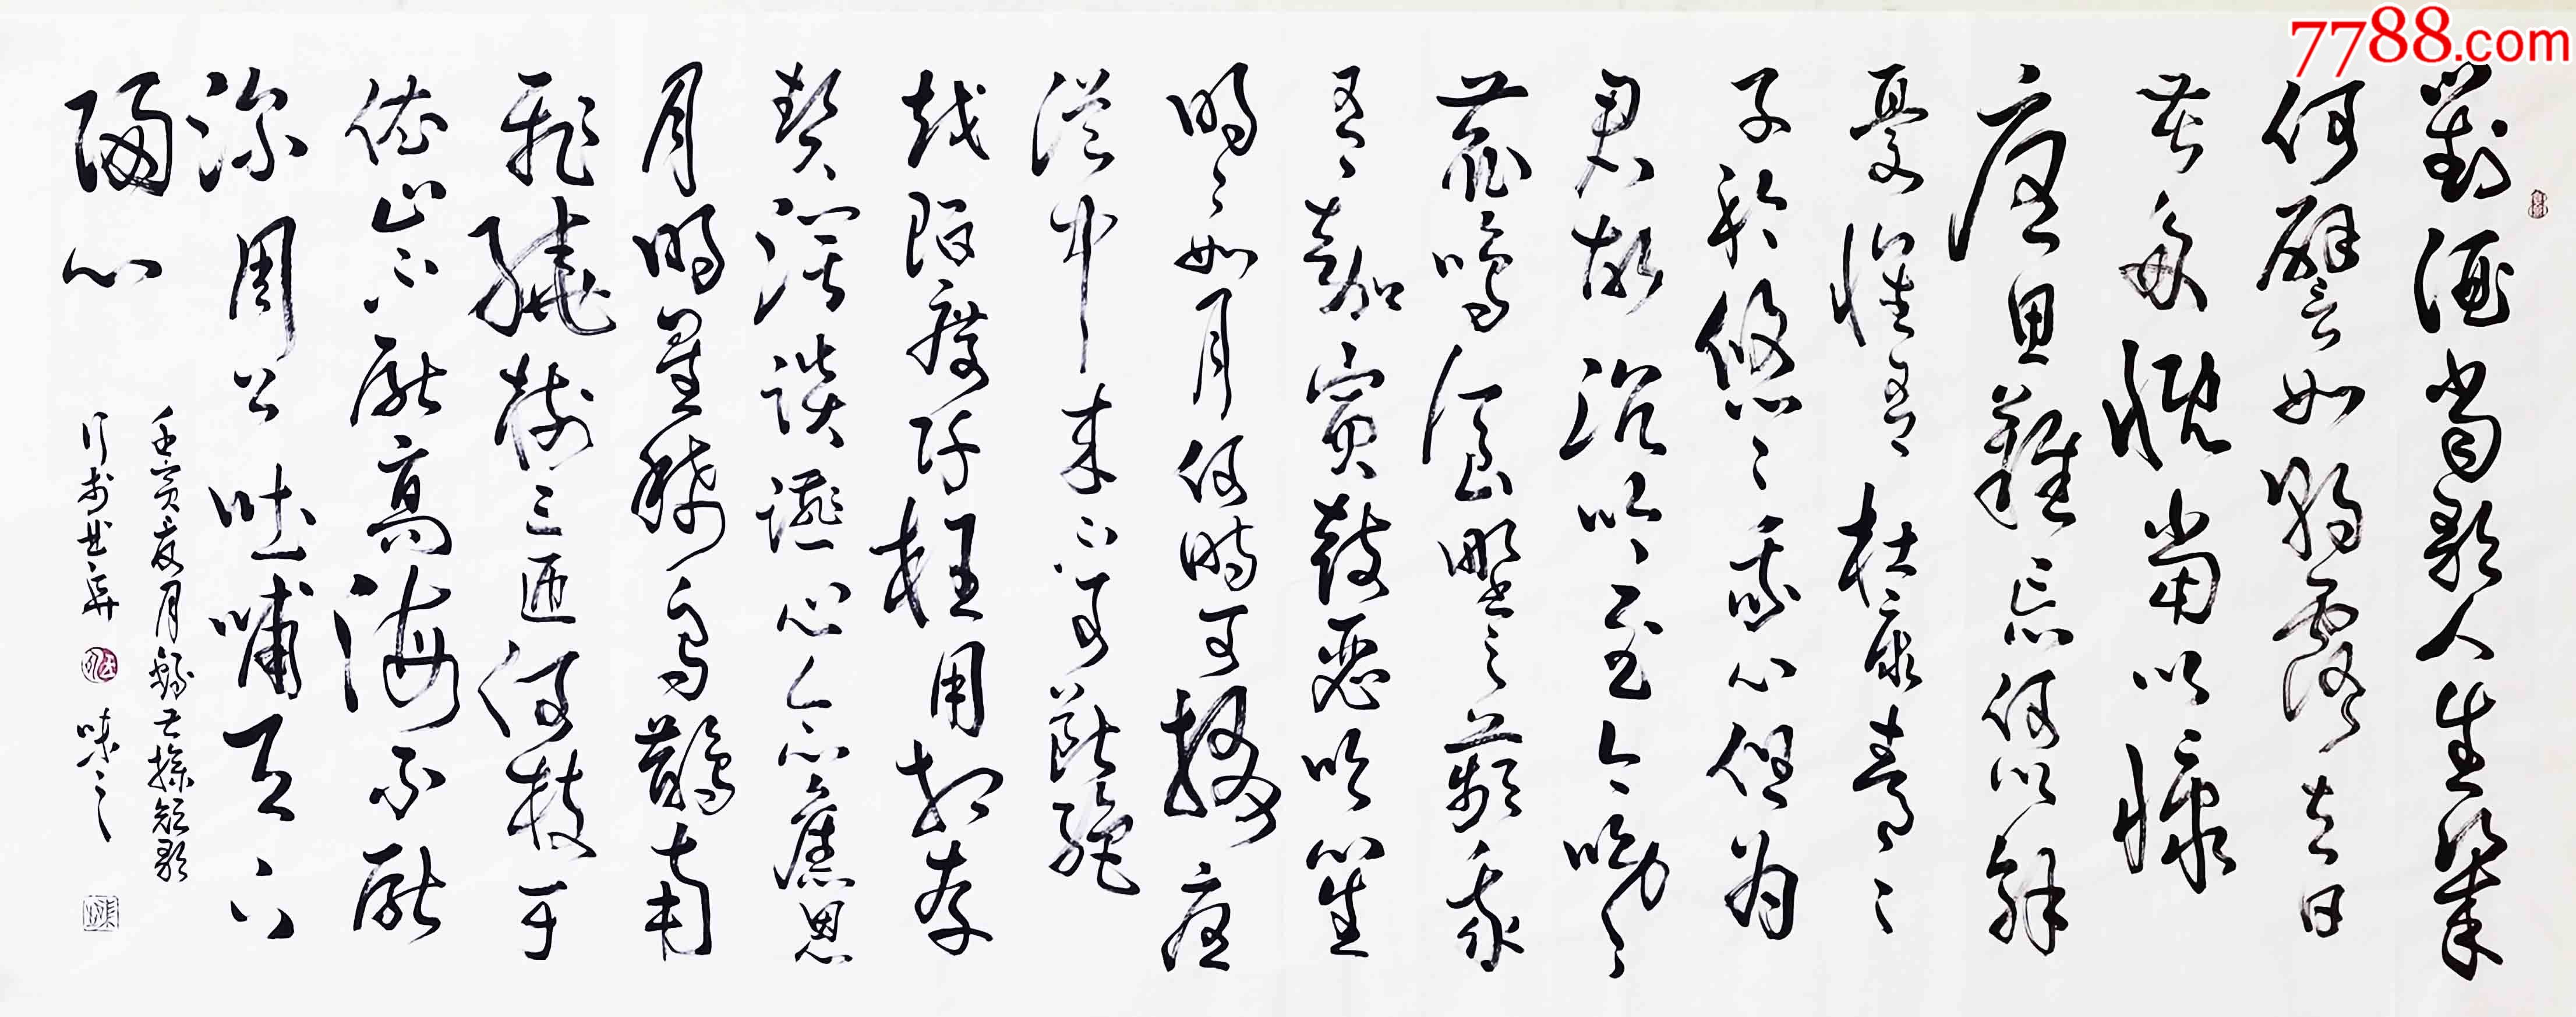 7788.com
對酒當歌人生幾
何譬如朝露去日
苦多慨當以慷
憂思難忘何以解
憂惟有杜康青々
子衿悠々我心但為
君故沉吟至今呦々
鹿鳴食野之蘋我
有嘉賓鼓瑟吹笙
明々如月何時可掇憂
從中來不可斷絕
越陌度阡枉用相存
契闊談讌心念舊恩
月明星稀烏鵲南
飛繞樹三匝何枝可
依山不厭高海不厭
深周公吐哺天下
歸心
壬寅夏月錄曹操短歌
行於 味之